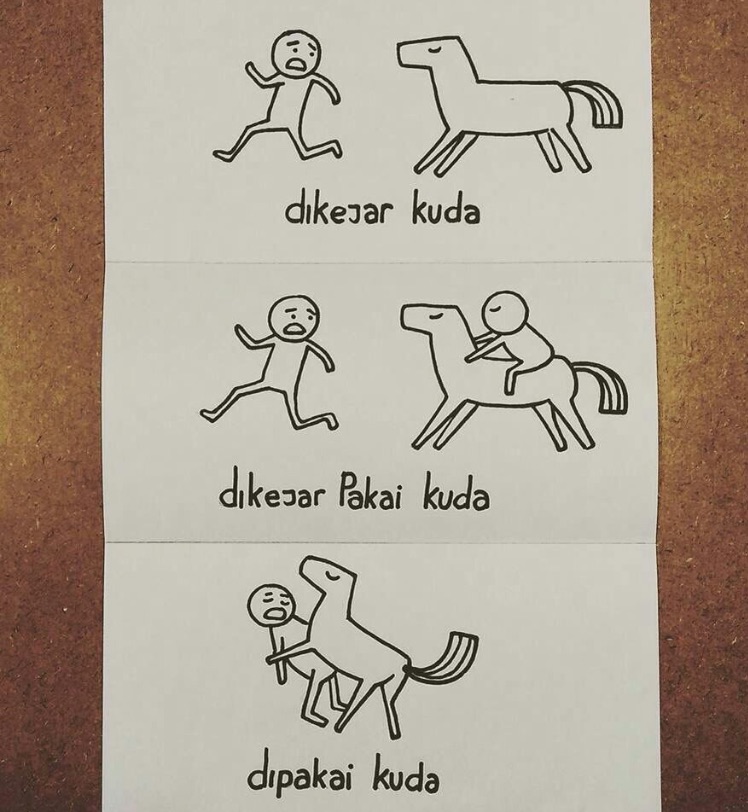 dikejar kuda
dikejar Pakai kuda
dipakai kuda